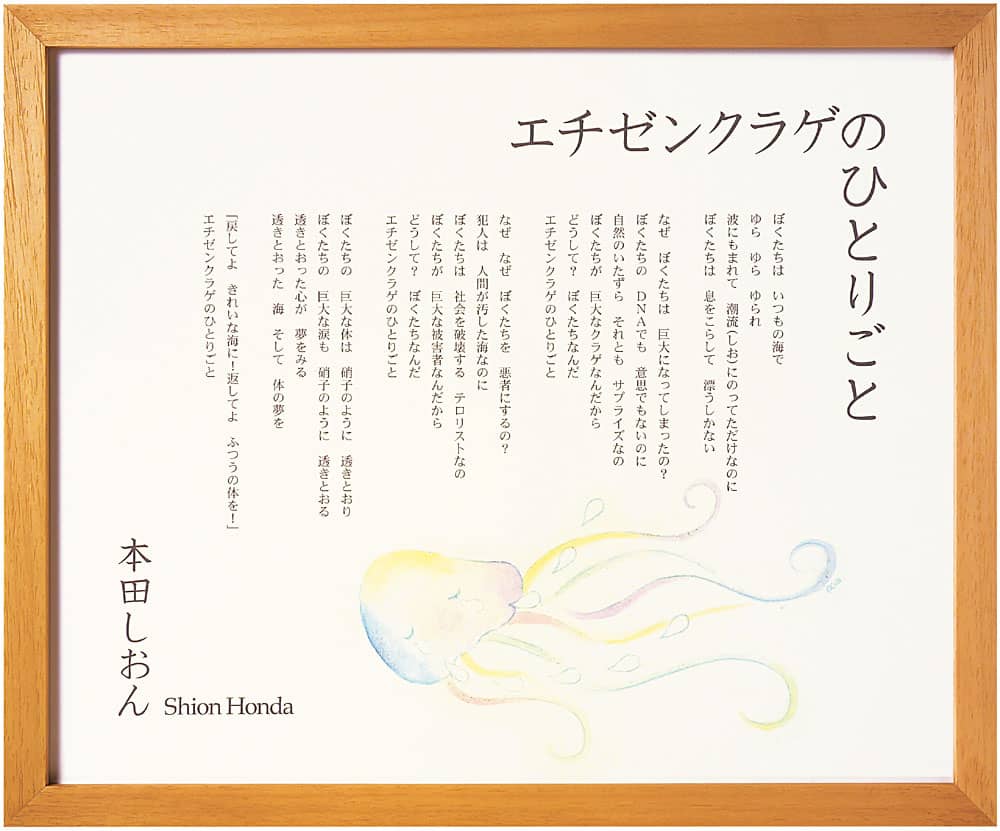 エチゼンクラゲの
ひとりごと
ぼくたちは　いつもの海で
ゆら　ゆら　ゆられ
波にもまれて　潮流(しお)にのってただけなのに
ぼくたちは　息をこらして　漂うしかない
なぜ　ぼくたちは　巨大になってしまったの?
ぼくたちの　DNAでも　意思でもないのに
自然のいたずら　それとも　サプライズなの
ぼくたちが　巨大なクラゲなんだから
どうして?　ぼくたちなんだ
エチゼンクラゲのひとりごと
なぜ　なぜ　ぼくたちを　悪者にするの?
犯人は　人間が汚した海なのに
ぼくたちは　社会を破壊する　テロリストなの
ぼくたちが　巨大な被害者なんだから
どうして?　ぼくたちなんだ
エチゼンクラゲのひとりごと
ぼくたちの　巨大な体は　硝子のように　透きとおり
ぼくたちの　巨大な涙も　硝子のように　透きとおる
透きとおった心が　夢をみる
透きとおった　海　そして　体の夢を
「戻してよ　きれいな海に!返してよ　ふつうの体を!」
エチゼンクラゲのひとりごと
本田しおん
Shion Honda